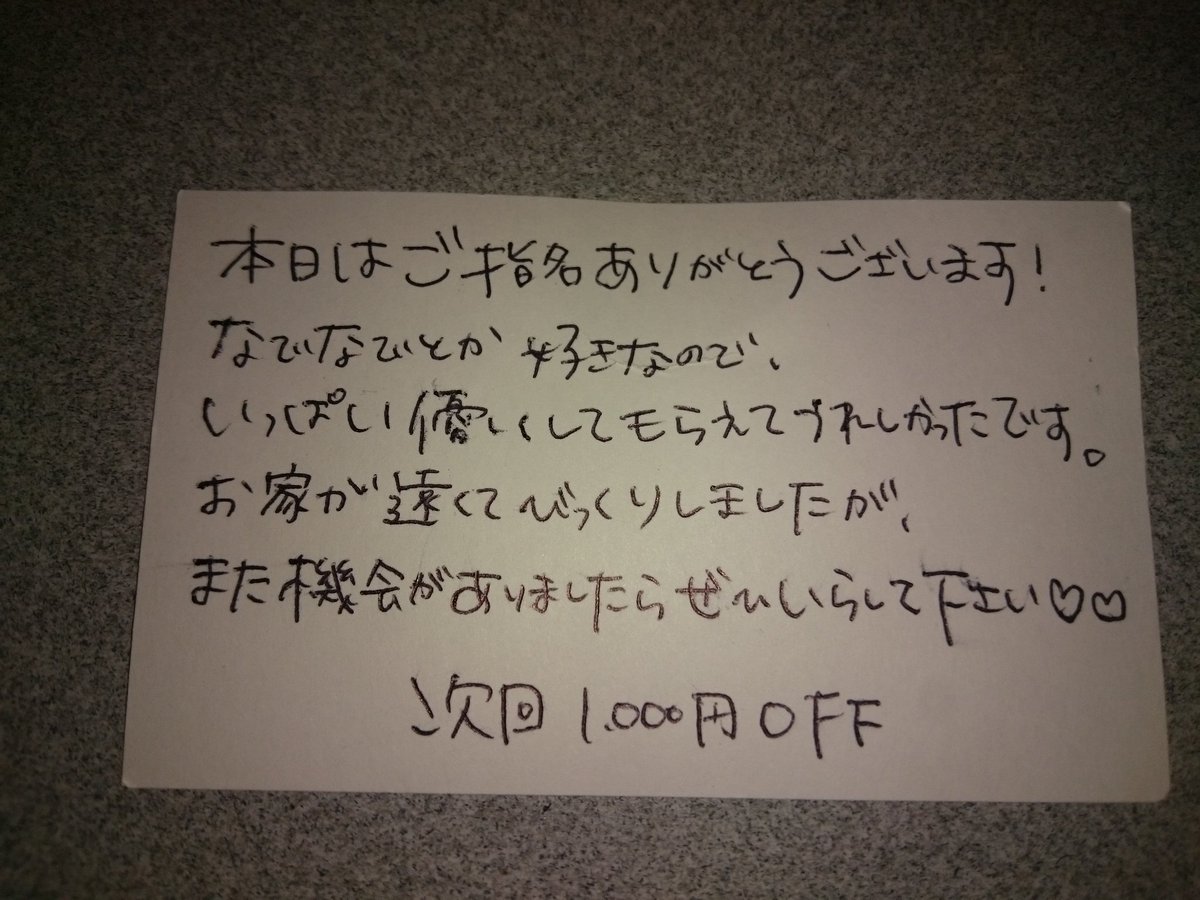 本日はご指名ありがとうございます!
なでなでとか好きなので、
いっぱい優しくしてもらえてうれしかったです。
お家が遠くてびっくりしましたが、
また機会がありましたらぜひいらして下さい♡♡
次回 1.000円OFF